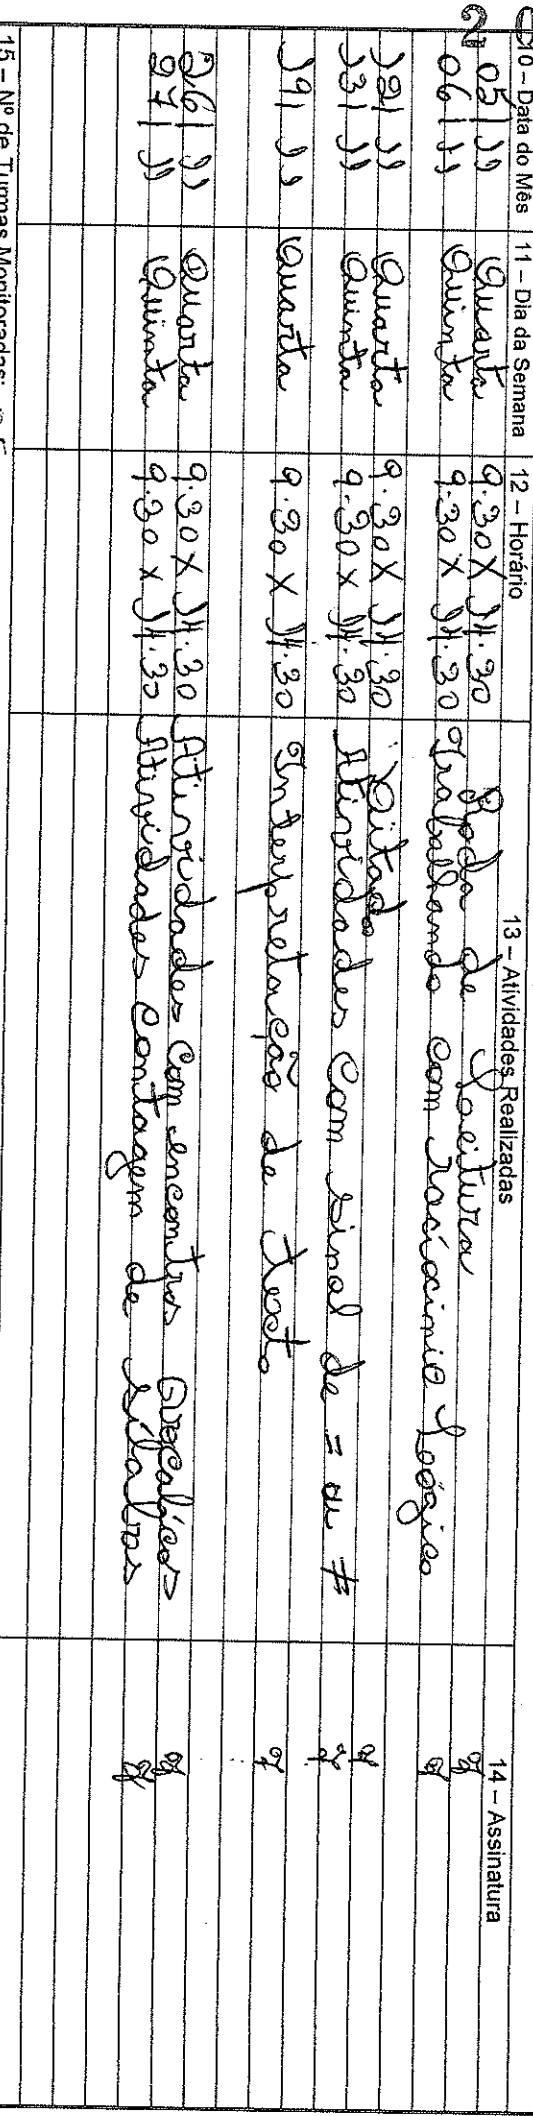 10 – Data do Mês 11 – Dia da Semana 12 – Horário 13 – Atividades Realizadas 14 – Assinatura
05/11 Quarta 9:30 X 14:30 Roda de Leitura
06/11 Quinta 9:30 X 14:30 Trabalhando com raciocinio Loógico
12/11 Quarta 9:30 X 14:30 Ditado
13/11 Quinta 9:30 X 14:30 Atividades com sinal de = ou ≠
19/11 Quarta 9:30 X 14:30 Interpretação de texto
26/11 Quarta 9:30 X 14:30 Atividades com encontros vocalicos
27/11 Quinta 9:30 X 14:30 Atividades contagem de silabas
15 – Nº de Turmas Monitoradas: